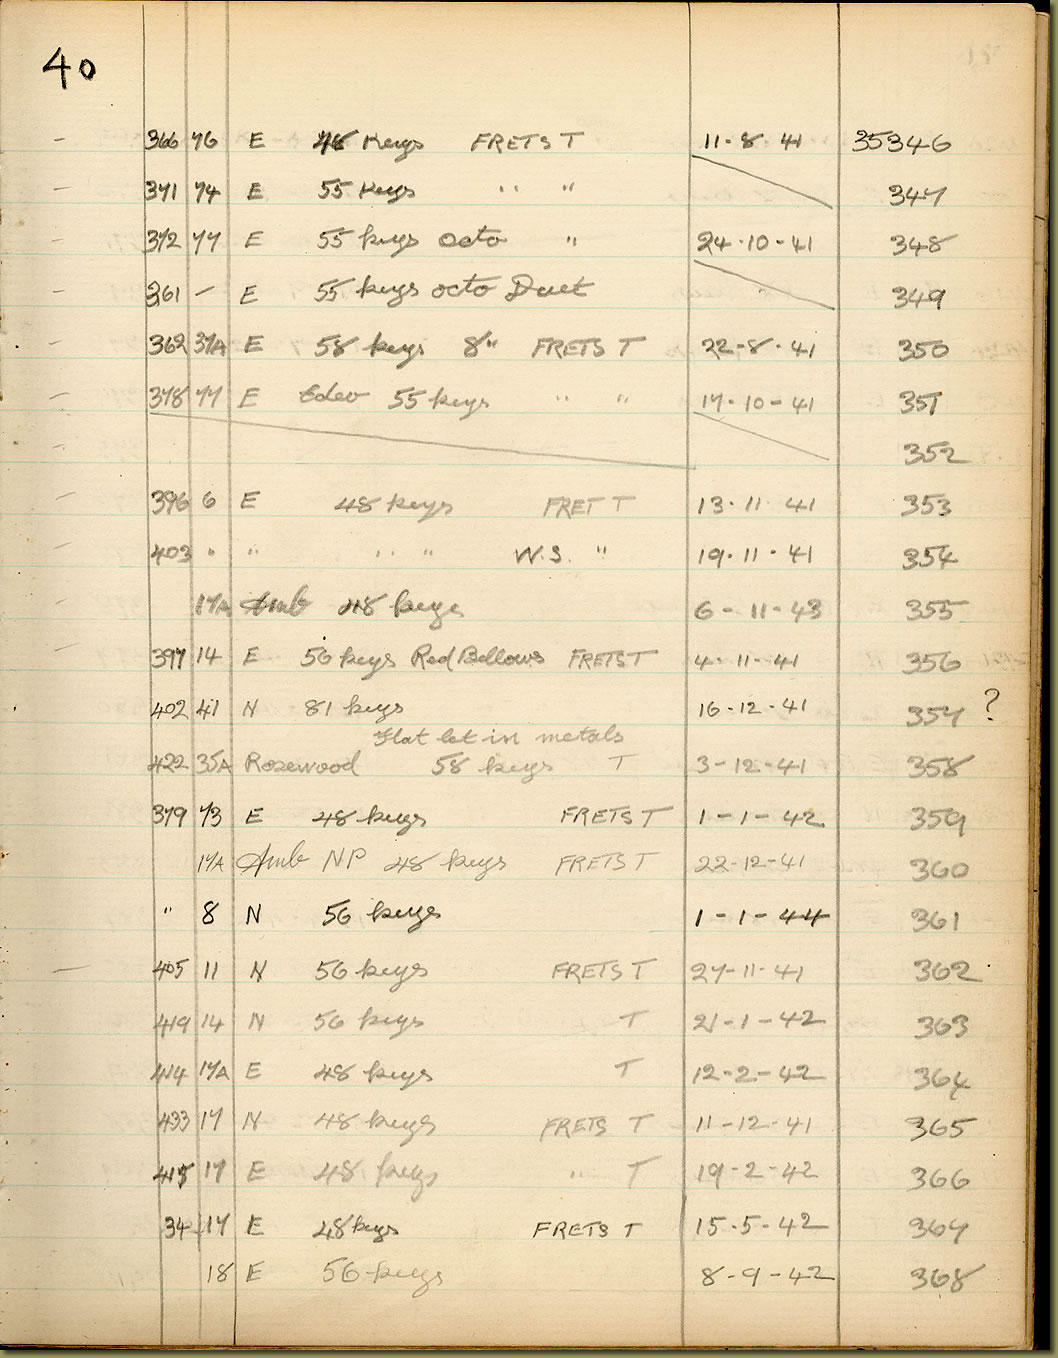 40
– 366 76 E 48 Keys FRETS T 11-8-41 35346
– 371 74 E 55 Keys " " 347
– 372 77 E 55 keys octo " 24-10-41 348
– 361 – E 55 keys octo Duet 349
– 362 37A E 58 keys 8" FRETS T 22-8-41 350
– 378 77 E Edeo 55 keys " " 17-10-41 351
– 352
– 396 6 E 48 keys FRET T 13-11-41 353
– 403 " " " " W.S. " 19-11-41 354
– 17A Amb 48 keys 6-11-43 355
– 397 14 E 56 keys Red Bellows FRETS T 4-11-41 356
402 41 N 81 keys 16-12-41 357 ?
Flat let in metals
422 35A Rosewood 58 keys T 3-12-41 358
379 73 E 48 keys FRETS T 1-1-42 359
17A Amb NP 48 keys FRETS T 22-12-41 360
" 8 N 56 keys 1-1-44 361
– 405 11 N 56 keys FRETS T 27-11-41 362
419 14 N 56 keys T 21-1-42 363
414 17A E 48 keys T 12-2-42 364
433 17 N 48 keys FRETS T 11-12-41 365
415 17 E 48 keys " T 19-2-42 366
34 17 E 48 keys FRETS T 15-5-42 367
18 E 56 keys 8-9-42 368